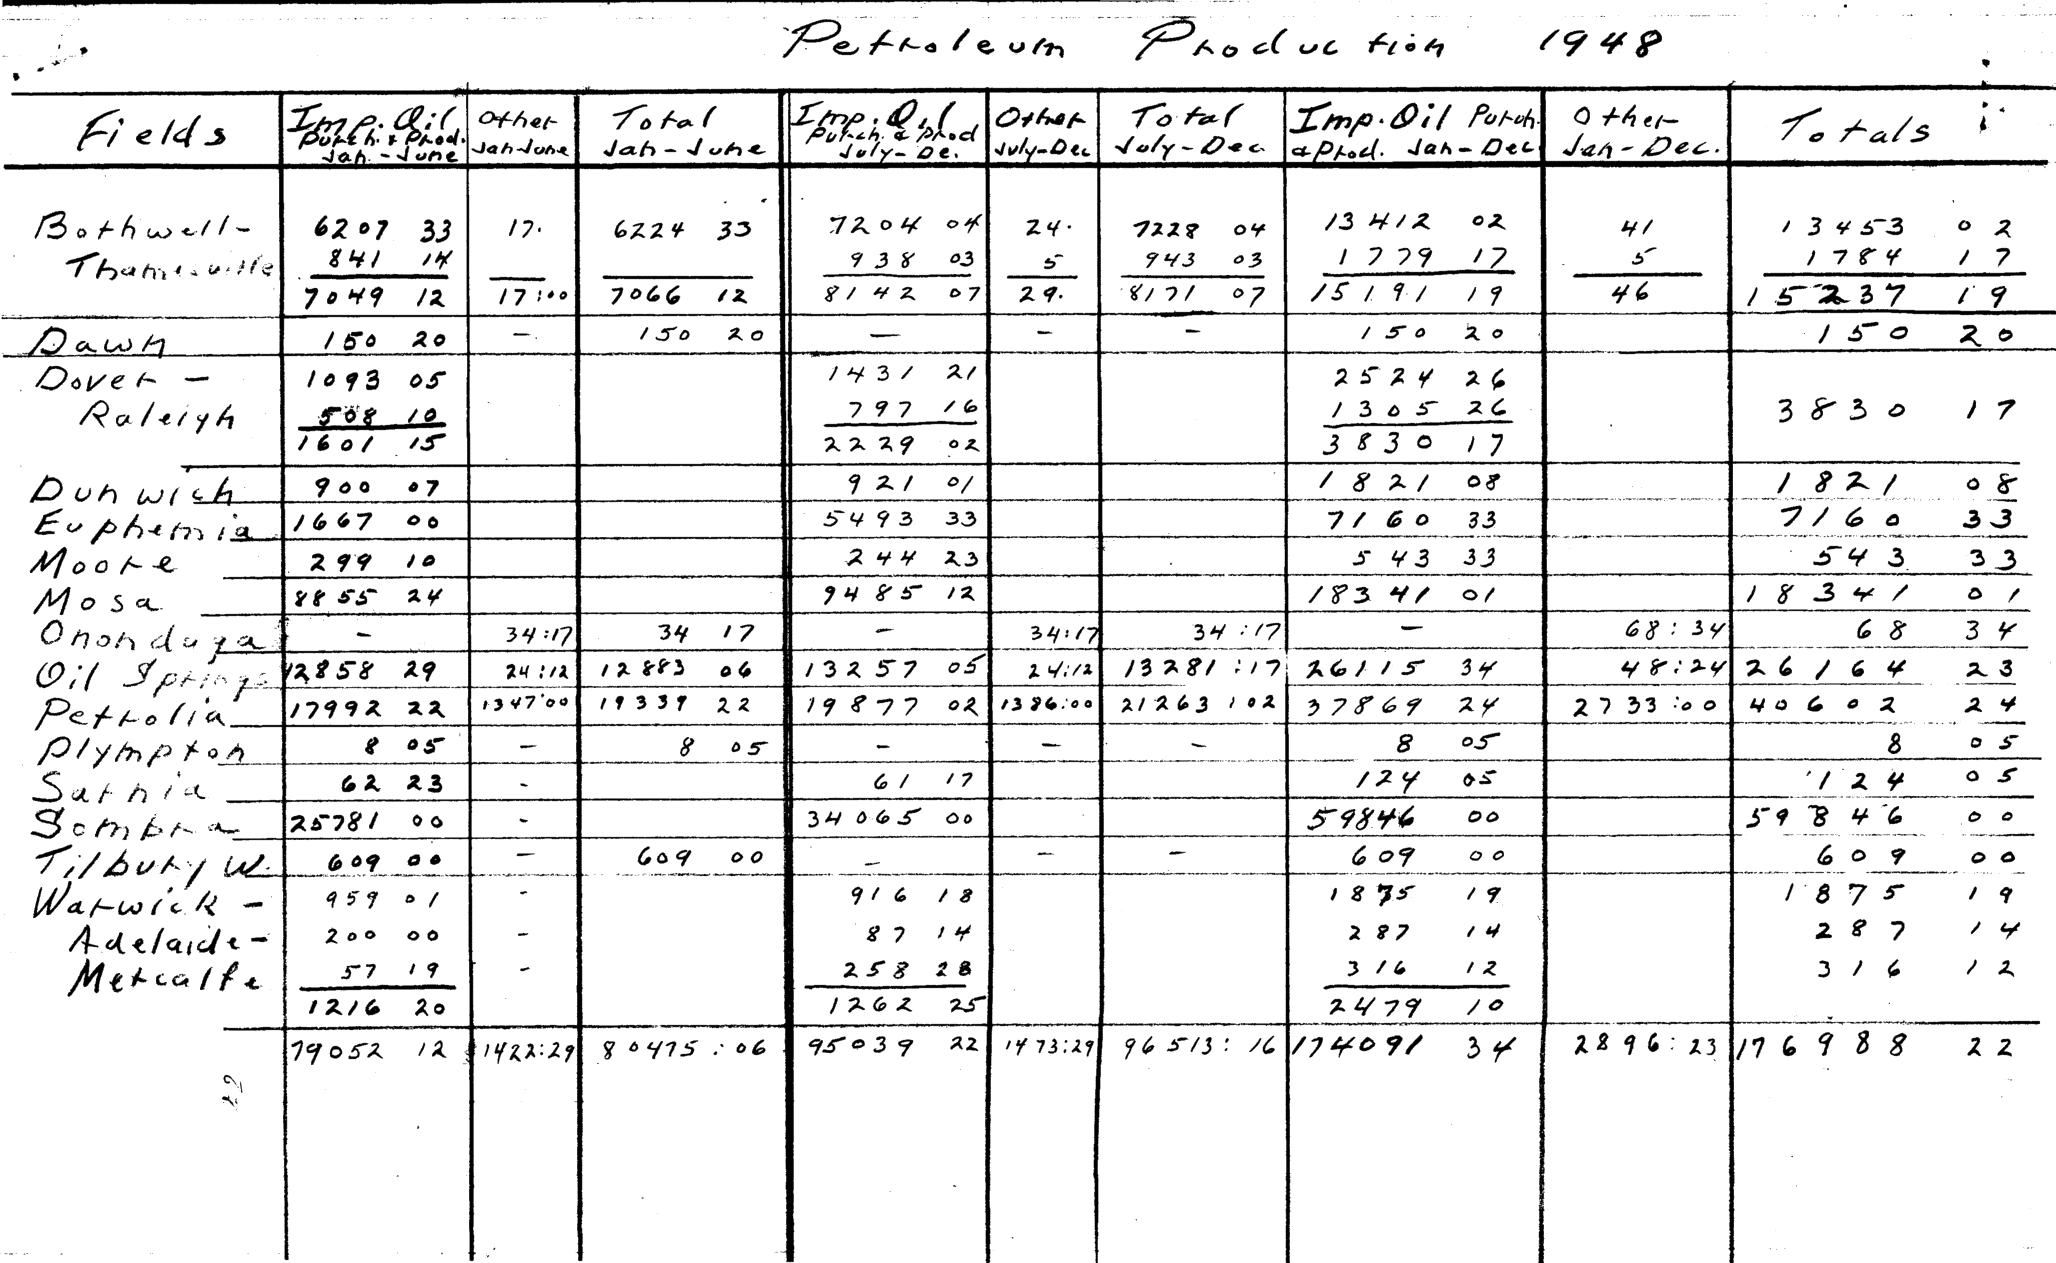 Petroleum Production 1948
Fields Imp. Oil Purch. & Prod. Jan. - June Other Jan-June Total Jan - June Imp. Oil Purch. & Prod July - De. Other July-Dec Total July - Dec. Imp. Oil Purch. & Prod. Jan - Dec. Other Jan - Dec. Totals
Bothwell - 6207 33 17. 6224 33 7204 04 24. 7228 04 13412 02 41 13453 02
Thamesville 841 14 938 03 5 943 03 1779 17 5 1784 17
7049 12 17:00 7066 12 8142 07 29. 8171 07 15191 19 46 15237 19
Dawn 150 20 - 150 20 - - - 150 20 150 20
Dover - 1093 05 1431 21 2524 26
Raleigh 508 10 797 16 1305 26 3830 17
1601 15 2229 02 3830 17
Dunwich 900 07 921 01 1821 08 1821 08
Euphemia 1667 00 5493 33 7160 33 7160 33
Moore 299 10 244 23 543 33 543 33
Mosa 8855 24 9485 12 18341 01 18341 01
Onondaga - 34:17 34 17 - 34:17 34:17 - 68:34 68 34
Oil Springs 12858 29 24:12 12883 06 13257 05 24:12 13281:17 26115 34 48:24 26164 23
Petrolia 17992 22 1347:00 19339 22 19877 02 1386:00 21263:02 37869 24 2733:00 40602 24
Plympton 8 05 - 8 05 - - - 8 05 8 05
Sarnia 62 23 - 61 17 124 05 124 05
Sombra 25781 00 - 34065 00 59846 00 59846 00
Tilbury W. 609 00 - 609 00 - - - 609 00 609 00
Warwick - 959 01 - 916 18 1875 19 1875 19
Adelaide - 200 00 - 87 14 287 14 287 14
Metcalfe 57 19 - 258 28 316 12 316 12
1216 20 1262 25 2479 10
79052 12 1422:29 80475:06 95039 22 1473:29 96513:16 174091 34 2896:23 176988 22
22